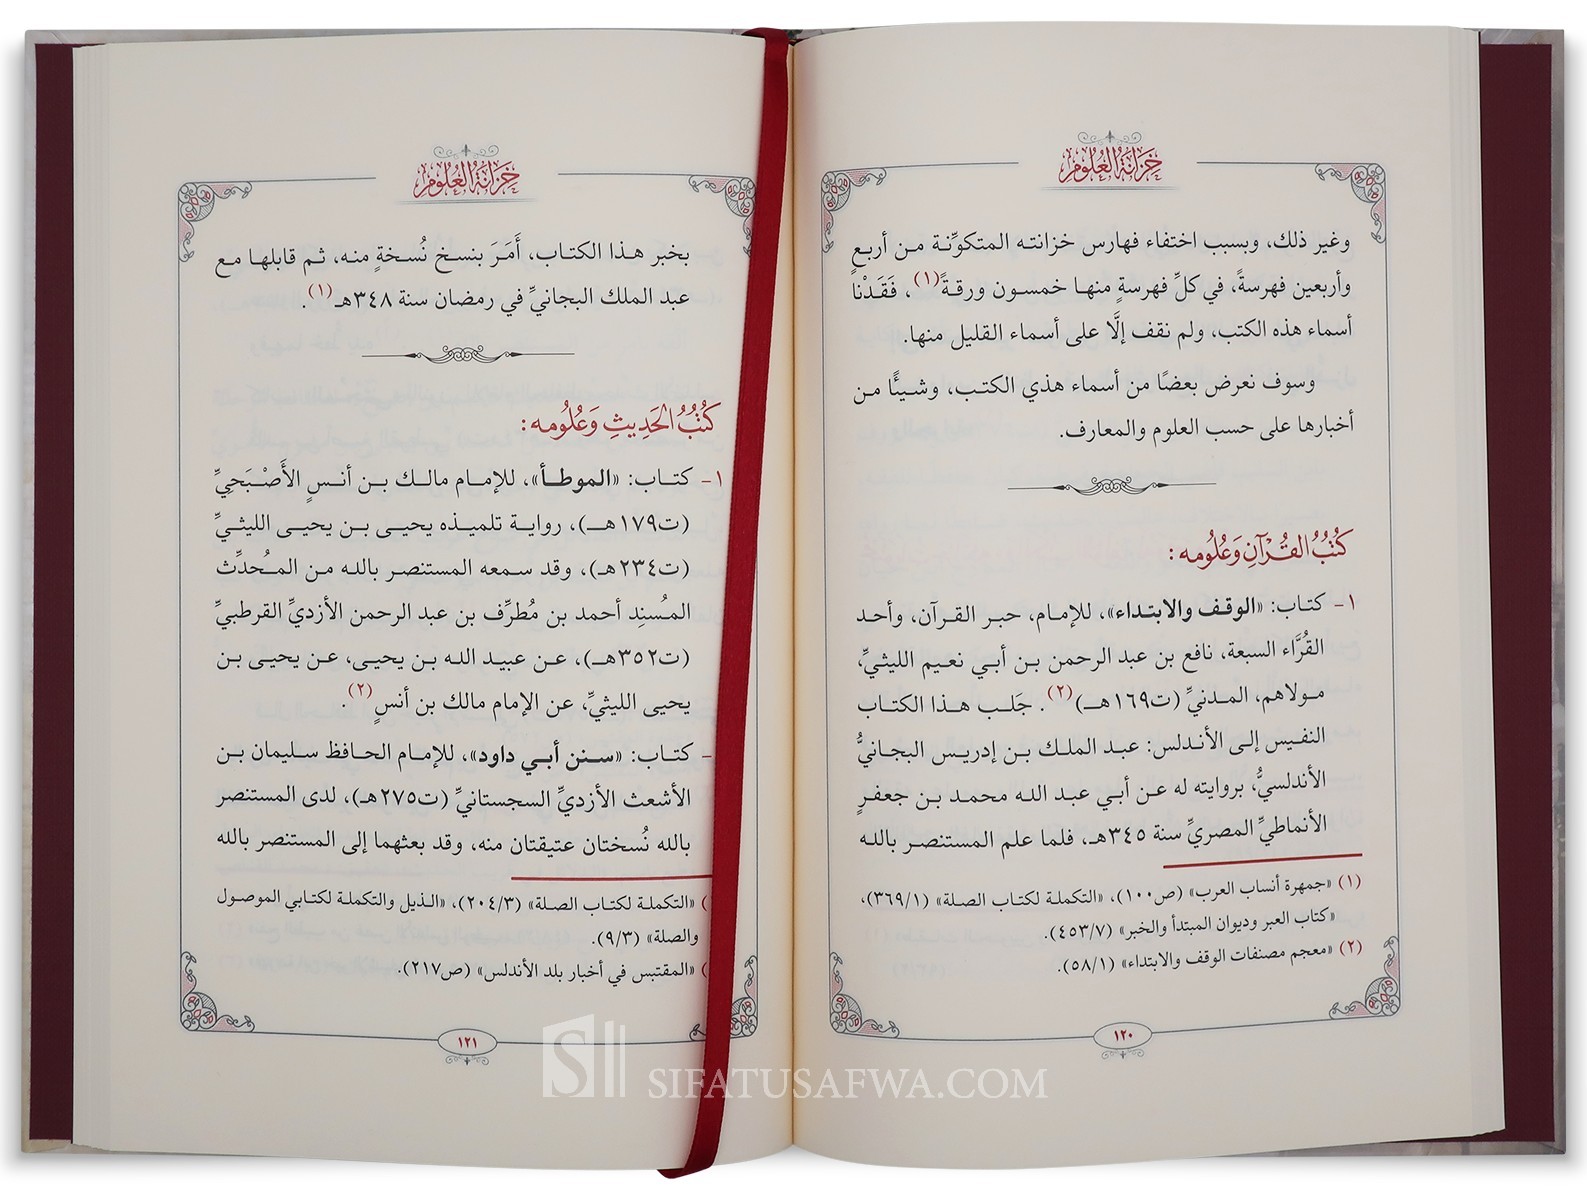 خَزانَةُ العُلُوم
وغير ذلك، وبسبب اختفاء فهارس خزانته المتكوِّنة من أربعٍ
وأربعين فهرسةً، في كلِّ فهرسةٍ منها خمسون ورقةً(١)، فَقَدْنا
أسماء هذه الكتب، ولم نقف إلَّا على أسماء القليل منها.
وسوف نعرض بعضًا من أسماء هذي الكتب، وشيئًا من
أخبارها على حسب العلوم والمعارف.
كُتُبُ القُرْآنِ وَعُلُومه:
١- كتاب: «الوقف والابتداء»، للإمام، حبر القرآن، وأحد
القُرَّاء السبعة، نافع بن عبد الرحمن بن أبي نعيم الليثيِّ،
مولاهم، المدنيِّ (ت١٦٩هـ)(٢). جَلب هذا الكتاب
النفيس إلى الأندلس: عبد الملك بن إدريس البجانيُّ
الأندلسيُّ، بروايته له عن أبي عبد الله محمد بن جعفرٍ
الأنماطيِّ المصريِّ سنة ٣٤٥هـ، فلما علم المستنصر بالله
(١) «جمهرة أنساب العرب» (ص١٠٠)، «التكملة لكتاب الصلة» (٣٦٩/١)،
«كتاب العبر وديوان المبتدأ والخبر» (٤٥٣/٧).
(٢) «معجم مصنفات الوقف والابتداء» (٥٨/١).
١٢٠
خَزانَةُ العُلُوم
بخبر هذا الكتاب، أَمَرَ بنسخ نُسخةٍ منه، ثم قابلها مع
عبد الملك البجانيِّ في رمضان سنة ٣٤٨هـ(١).
كُتُبُ الحَدِيثِ وَعُلُومه:
١- كتاب: «الموطأ»، للإمام مالك بن أنسٍ الأَصْبَحِيِّ
(ت١٧٩هـ)، رواية تلميذه يحيى بن يحيى الليثيِّ
(ت٢٣٤هـ)، وقد سمعه المستنصر بالله من المُحدِّث
المُسنِد أحمد بن مُطرِّف بن عبد الرحمن الأزديِّ القرطبيِّ
(ت٣٥٢هـ)، عن عبيد الله بن يحيى، عن يحيى بن
يحيى الليثيِّ، عن الإمام مالك بن أنسٍ(٢).
- كتاب: «سنن أبي داود»، للإمام الحافظ سليمان بن
الأشعث الأزديِّ السجستانيِّ (ت٢٧٥هـ)، لدى المستنصر
بالله نُسختان عتيقتان منه، وقد بعثهما إلى المستنصر بالله
) «التكملة لكتاب الصلة» (٢٠٤/٣)، «الذيل والتكملة لكتابي الموصول
والصلة» (٩/٣).
) «المقتبس في أخبار بلد الأندلس» (ص٢١٧).
١٢١
SIFATUSAFWA.COM